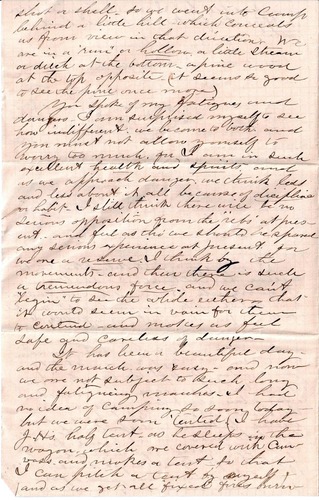 shot or shell. So we went into Camp
behind a little hill which conceals
us from view in that direction. We
are in a "run" or hollow, a little stream
or ditch at the bottom, a pine wood
at the top opposite. It seems so good
to see the pine once more.
You spoke of my fatigues and
dangers. I am surprised myself to see
how indifferent we become to both, and
you must not allow yourself to
worry too much, for I am in such
excellent health and spirits, and
as we approach danger, we think less
and less about it all because of discipline
or habit. I still think there will be no
serious opposition from the rebs at pres-
ent, and feel as tho we should be spared
any serious experience at present, for
we are a reserve I think by the
movements - and then there is such
a tremendous force - and we can't
"begin" to see the whole either - that
it would seem in vain for them
to contend - and most of us feel
safe and careless of danger.
It has been a beautiful day
and the march was easy - and now
we are not subject to such long
and fatiguing marches. I had
no idea of camping so soon today
but we were soon tented (I have
J.H's half tent, as he sleeps in the
wagon, which we covered with
and makes a tent, so that
I can pitch a tent by myself)
and as we get all fixed